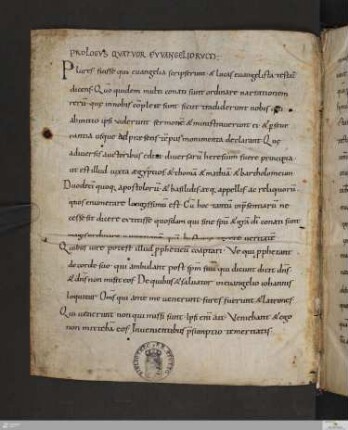 PROLOGVS QVATVOR EVVANGELIORVM
Plures fuisse qui euangelia scripserunt & lucas euangelista testatur
dicens Quo quidem multi conati sunt ordinare narrationem
reru que in nobis complete sunt sicut tradiderunt nobis qui
ab initio ipsi uiderunt sermone & ministrauerunt ei & perseuer
cantia usque ad presens tepus monumenta declarant Que
a diuersis auctoribus edita diuersaru heresum fuere principia
ut est illud iuxta aegyptios & thoma & mathia & bartholomeum
Duodeci quoq apostoloru & basilidis atq apellis ac reliquoru
quos enumerare longissimu est Cu hoc tantu in presentiaru ne
cesse sit dicere extitisse quosdam qui sine spu & gra di conati sunt
magis ordinare
Quibus iure potest illud ppheticu coaptari Ve qui pphetant
de corde suo qui ambulant post spm suu qui dicunt dicit dns
& dns non misit eos De quibus & saluator in euangelio iohannis
loquitur Oms qui ante me uenerunt fures fuerunt & latrones
Qui uenerunt non qui missi sunt Ipse eni ait Veniebant & ego
non mittebam eos In uenientibus psumptio temeritatis